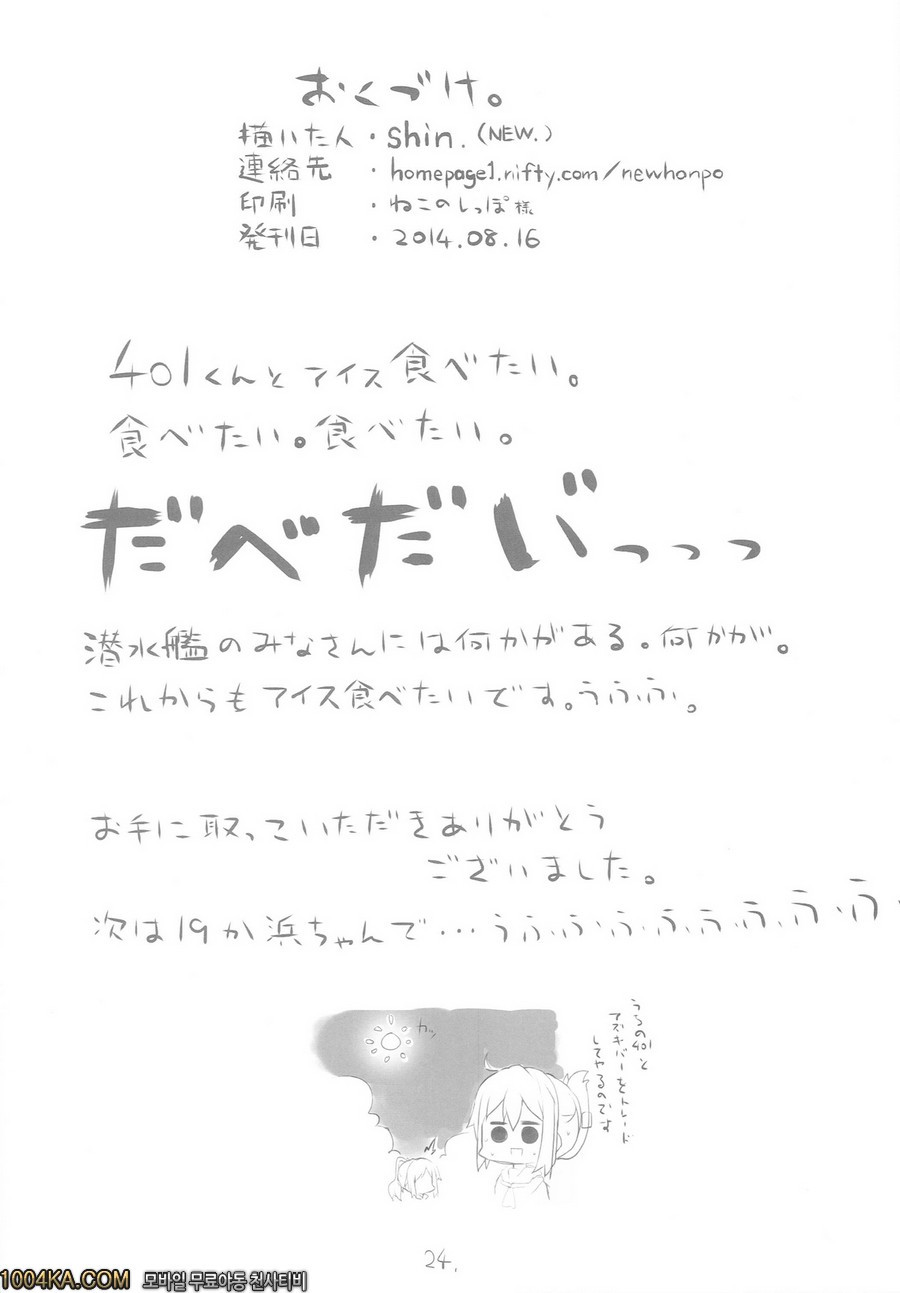 おくづけ。
描いた人・shin.(NEW.)
連絡先・homepage1.nifty.com/newhonpo
印刷・ねこのしっぽ様
発刊日・2014.08.16
401くんとアイス食べたい。
食べたい。食べたい。
だべだい゛っっっ
潜水艦のみなさんには何かがある。何かが。
これからもアイス食べたいです。うふふ。
お手に取っていただきありがとう
ございました。
次は19か浜ちゃんで…うふふふふふふふ
カッ
うちの401と
アズキバーをトレード
してやるのです
24.
1004KA.COM 모바일 무료야동 천사티비